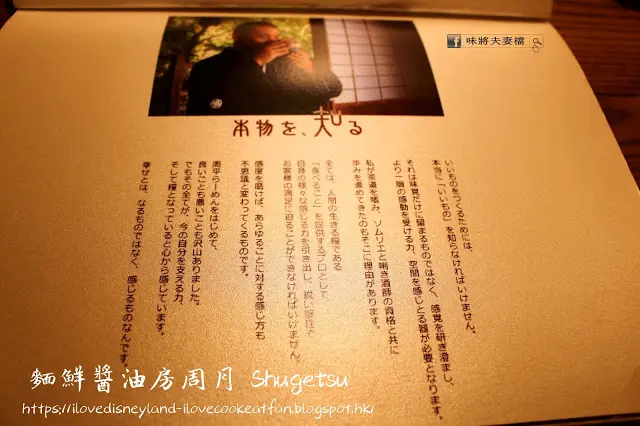 味將夫妻檔
本物を、知る
いいものをつくるためには、
本当に「いいもの」を知らなければいけません。
それは味覚だけに留まるものではなく、感覚を研ぎ澄まし、
より一層の感動を受ける力、空間を感じとる器が必要となります。
私が茶道を嗜み、ソムリエと唎き酒師の資格と共に
歩みを進めてきたのもそこに理由があります。
全ては、人間の生きる糧である
「食べること」を提供するプロとして、
自身の様々な感じる力を引き出し、鋭い感性で
お客様の満足に迫ることができなければいけません。
感度を磨けば、あらゆることに対する感じ方も
不思議と変わってくるものです。
周平らーめんをはじめて、
良いことも悪いことも沢山ありました。
でもその全てが、今の自分を支える力、
そして糧となっていると心から感じています。
幸せとは、なるものではなく、感じるものなんです。
麵鮮醬油房周月 Shugetsu
https://ilovedisneyland-ilovecookeatfun.blogspot.hk/